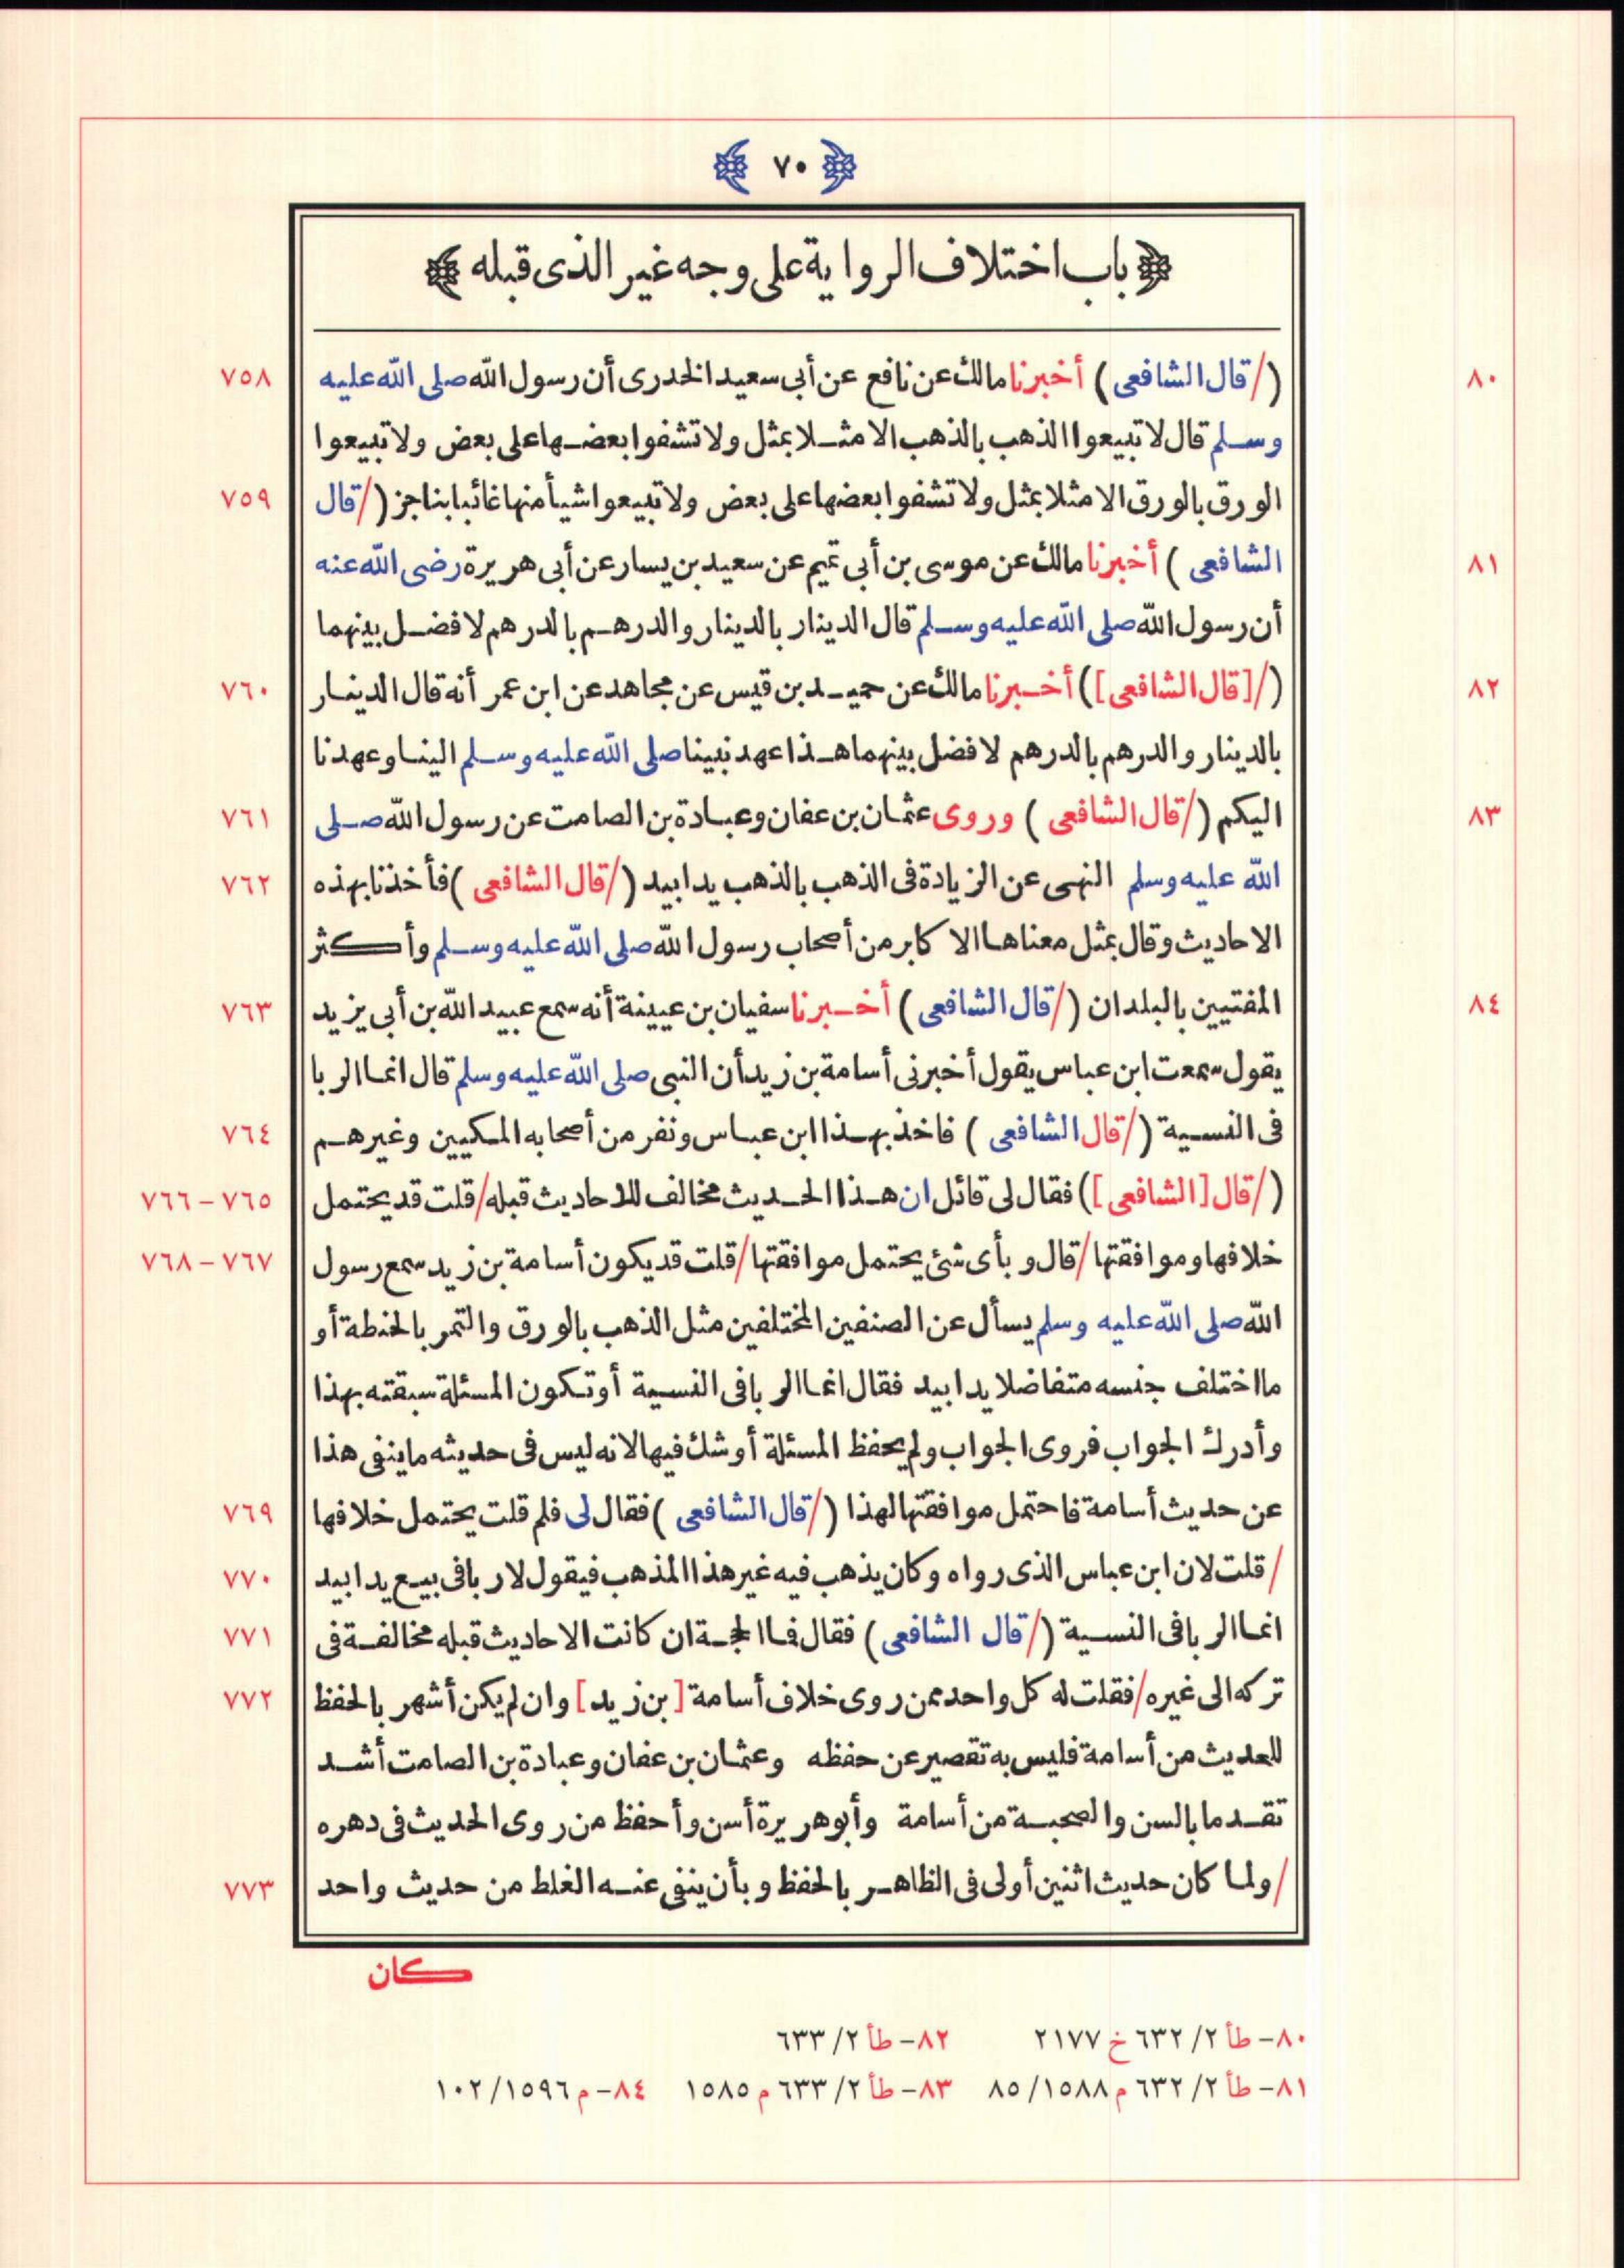 ﴿ ٧٠ ﴾
﴿ باب اختلاف الرواية على وجه غير الذى قبله ﴾
٨٠ (/قال الشافعى) أخبرنا مالك عن نافع عن أبى سعيد الخدرى أن رسول الله صلى الله عليه ٧٥٨
وسلم قال لا تبيعوا الذهب بالذهب الا مثلا بمثل ولا تشفوا بعضها على بعض ولا تبيعوا
الورق بالورق الا مثلا بمثل ولا تشفوا بعضها على بعض ولا تبيعوا شيأ منها غائبا بناجز (/قال ٧٥٩
٨١ الشافعى) أخبرنا مالك عن موسى بن أبى تميم عن سعيد بن يسار عن أبى هريرة رضى الله عنه
أن رسول الله صلى الله عليه وسلم قال الدينار بالدينار والدرهم بالدرهم لا فضل بينهما
٨٢ (/[قال الشافعى]) أخبرنا مالك عن حميد بن قيس عن مجاهد عن ابن عمر أنه قال الدينار ٧٦٠
بالدينار والدرهم بالدرهم لا فضل بينهما هذا عهد نبينا صلى الله عليه وسلم الينا وعهدنا
٨٣ اليكم (/قال الشافعى) وروى عثمان بن عفان وعبادة بن الصامت عن رسول الله صلى ٧٦١
الله عليه وسلم النهى عن الزيادة فى الذهب بالذهب يدا بيد (/قال الشافعى) فأخذنا بهذه ٧٦٢
الاحاديث وقال بمثل معناها الاكابر من أصحاب رسول الله صلى الله عليه وسلم وأكثر
٨٤ المفتيين بالبلدان (/قال الشافعى) أخبرنا سفيان بن عيينة أنه سمع عبيد الله بن أبى يزيد ٧٦٣
يقول سمعت ابن عباس يقول أخبرنى أسامة بن زيد أن النبى صلى الله عليه وسلم قال انما الربا
فى النسية (/قال الشافعى) فاخذ بهذا ابن عباس ونفر من أصحابه المكيين وغيرهم ٧٦٤
(/قال [الشافعى]) فقال لى قائل ان هذا الحديث مخالف للاحاديث قبله/قلت قد يحتمل ٧٦٥ – ٧٦٦
خلافها وموافقتها/قال وبأى شئ يحتمل موافقتها/قلت قد يكون أسامة بن زيد سمع رسول ٧٦٧ – ٧٦٨
الله صلى الله عليه وسلم يسأل عن الصنفين المختلفين مثل الذهب بالورق والتمر بالحنطة أو
ما اختلف جنسه متفاضلا يدا بيد فقال انما الربا فى النسية أو تكون المسئلة سبقته بهذا
وأدرك الجواب فروى الجواب ولم يحفظ المسئلة أو شك فيها لانه ليس فى حديثه ما ينفى هذا
عن حديث أسامة فاحتمل موافقتها لهذا (/قال الشافعى) فقال لى فلم قلت يحتمل خلافها ٧٦٩
/قلت لان ابن عباس الذى رواه وكان يذهب فيه غير هذا المذهب فيقول لا ربا فى بيع يدا بيد ٧٧٠
انما الربا فى النسية (/قال الشافعى) فقال فما الحجة ان كانت الاحاديث قبله مخالفة فى ٧٧١
تركه الى غيره/فقلت له كل واحد ممن روى خلاف أسامة [بن زيد] وان لم يكن أشهر بالحفظ ٧٧٢
للحديث من أسامة فليس به تقصير عن حفظه وعثمان بن عفان وعبادة بن الصامت أشد
تقدما بالسن والصحبة من أسامة وأبو هريرة أسن وأحفظ من روى الحديث فى دهره
/ولما كان حديث اثنين أولى فى الظاهر بالحفظ وبأن ينفى عنه الغلط من حديث واحد ٧٧٣
كان
٨٠– طأ ٢/ ٦٣٢ خ ٢١٧٧ ٨٢– طأ ٢/ ٦٣٣
٨١– طأ ٢/ ٦٣٢ م ١٥٨٨/ ٨٥ ٨٣– طأ ٢/ ٦٣٣ م ١٥٨٥ ٨٤– م ١٥٩٦/ ١٠٢